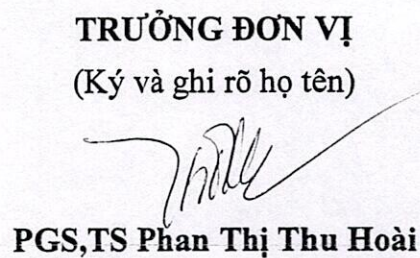 TRƯỞNG ĐƠN VỊ
(Ký và ghi rõ họ tên)
PGS,TS Phan Thị Thu Hoài